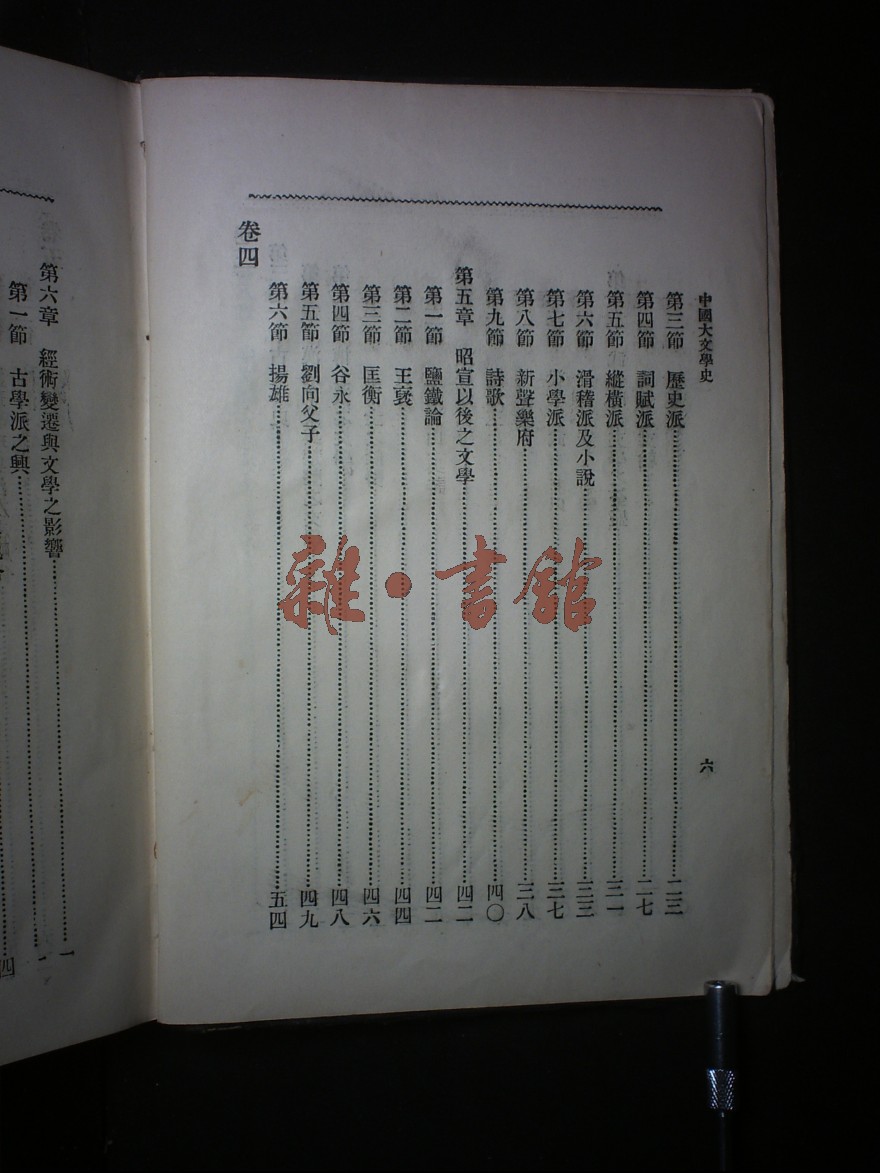 中國大文學史
六
第三節 歷史派 二三
第四節 詞賦派 二七
第五節 縱橫派 三一
第六節 滑稽派及小說 三三
第七節 小學派 三七
第八節 新聲樂府 三八
第九節 詩歌 四〇
第五章 昭宣以後之文學 四二
第一節 鹽鐵論 四二
第二節 王襃 四四
第三節 匡衡 四六
第四節 谷永 四八
第五節 劉向父子 四九
第六節 揚雄 五四
卷四
第六章 經術變遷與文學之影響 一
第一節 古學派之興 一
四
雜·書館